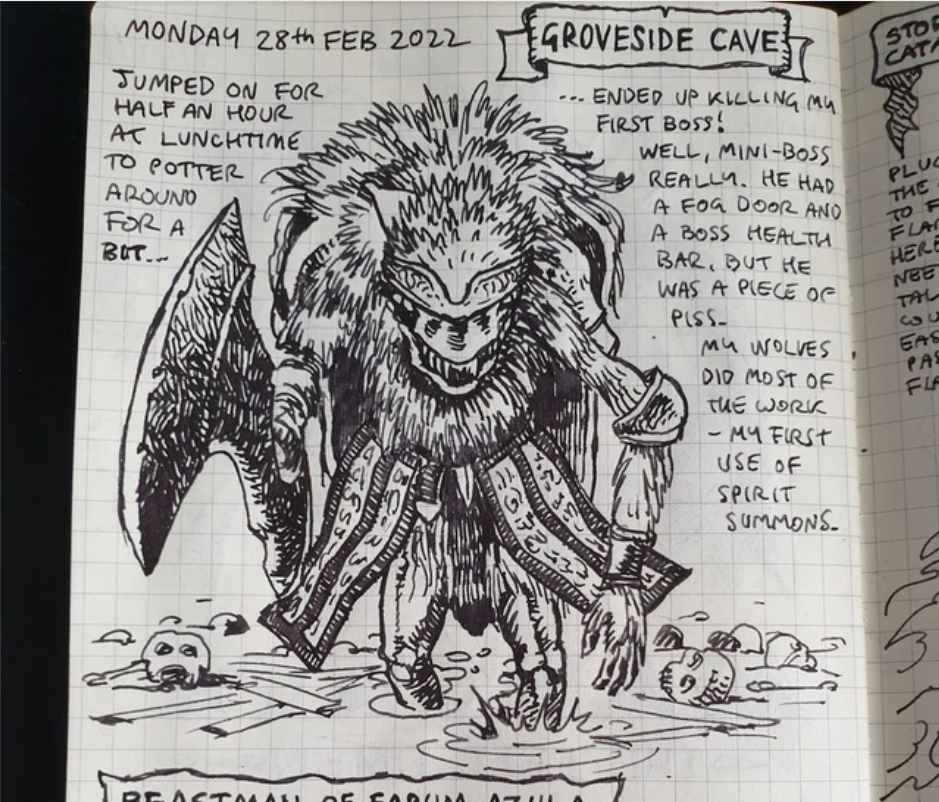 MONDAY 28th FEB 2022
GROVESIDE CAVE
JUMPED ON FOR
HALF AN HOUR
AT LUNCHTIME
TO POTTER
AROUND
FOR A
BIT...
... ENDED UP KILLING MY
FIRST BOSS!
WELL, MINI-BOSS
REALLY. HE HAD
A FOG DOOR AND
A BOSS HEALTH
BAR, BUT HE
WAS A PIECE OF
PISS.
MY WOLVES
DID MOST OF
THE WORK
- MY FIRST
USE OF
SPIRIT
SUMMONS.
BEASTMAN OF FARUM AZULA